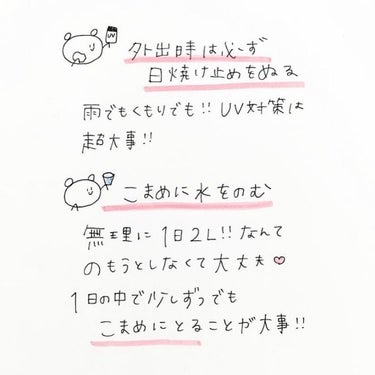 UV
外出時は必ず
日焼け止めをぬる
雨でもくもりでも!! UV対策は
超大事!!
こまめに水をのむ
無理に1日2L!!なんて
のもうとしなくて大丈夫♡
1日の中で少しずつでも
こまめにとることが大事!!